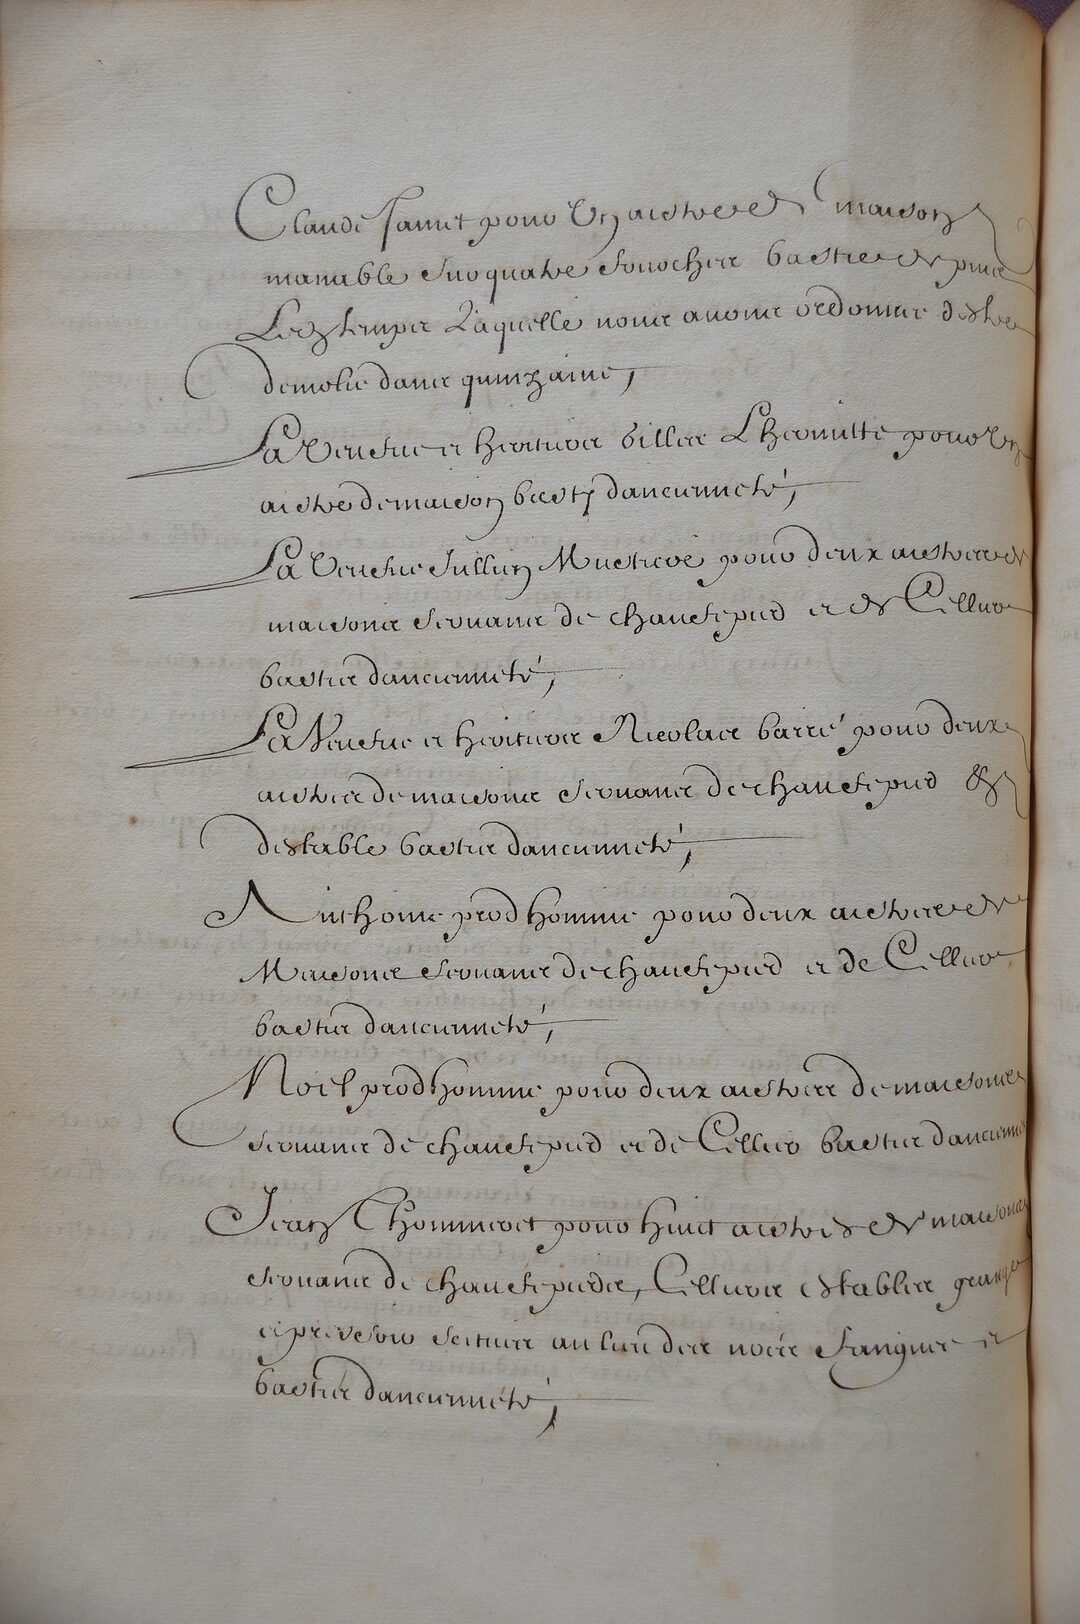 Claude Jamet pour un aistre de maison
manable sur quatre fourches bastie depuis
Longtemps Laquelle nous avons ordonné estre
demolie dans quinzaine,
La Veufue et heritiers Gilles Lhermitte pour un
aistre de maison basty dancienneté,
La Veufue Jullien pour deux aistres de
maisons servans de chauffepied et de Cellier
basties dancienneté,
La Veufue et heritiers Nicolas barré pour deux
aistres de maisons servans de chauffepied &
destable basties dancienneté,
Anthoine prodhomme pour deux aistres de
Maisons servans de chauffepied et de Cellier
basties dancienneté,
Noel prodhomme pour deux aistres de maisons
servans de chauffepied et de Cellier basties dancienneté
Jean Lhommet pour huict aistres de maisons
servans de chauffepieds, Celliers establies grange
et pressoir scitués au lieu des et
basties dancienneté,